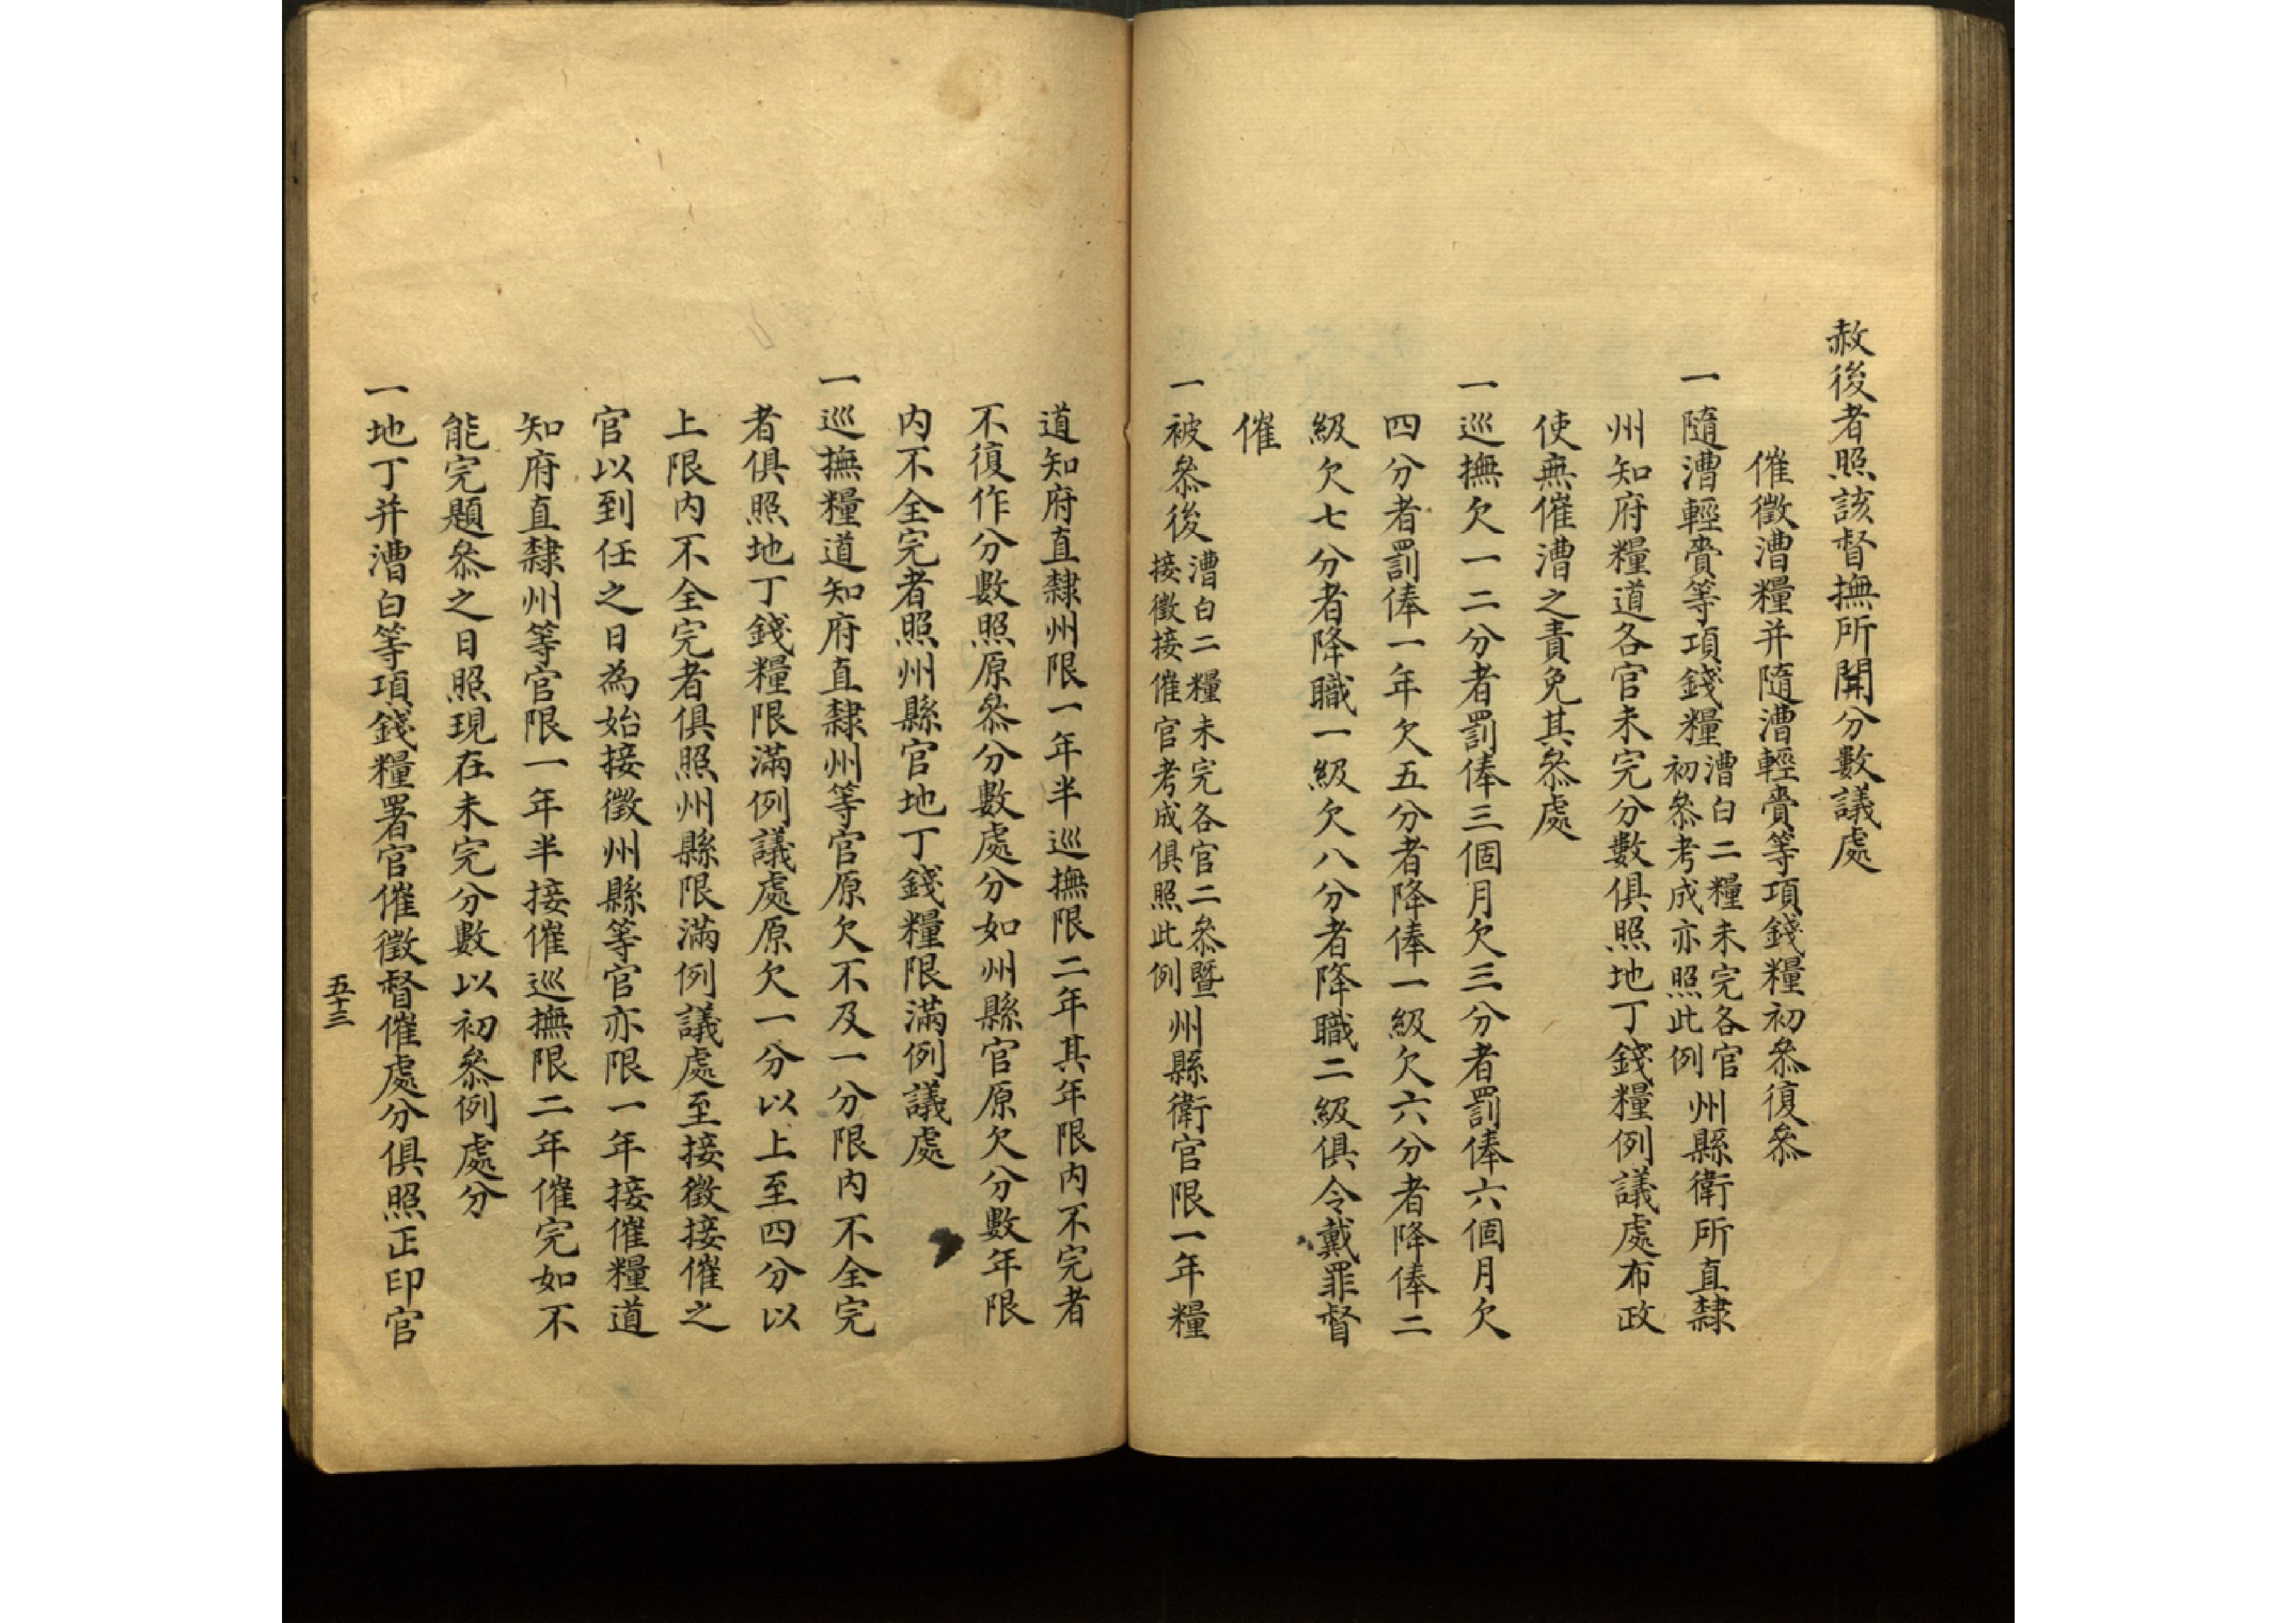 赦後者照該督撫所開分數議處
催徵漕糧并隨漕輕賫等項錢糧初叅復叅
一隨漕輕賫等項錢糧漕白二糧未完各官初叅考成亦照此例州縣衛所直隸
州知府糧道各官未完分數俱照地丁錢糧例議處布政
使無催漕之責免其叅處
一巡撫欠一二分者罰俸三個月欠三分者罰俸六個月欠
四分者罰俸一年欠五分者降俸一級欠六分者降俸二
級欠七分者降職一級欠八分者降職二級俱令戴罪督
催
一被叅後漕白二糧未完各官二叅暨接徵接催官考成俱照此例州縣衛官限一年糧
道知府直隸州限一年半巡撫限二年其年限內不完者
不復作分數照原叅分數處分如州縣官原欠分數年限
內不全完者照州縣官地丁錢糧限滿例議處
一巡撫糧道知府直隸州等官原欠不及一分限內不全完
者俱照地丁錢糧限滿例議處原欠一分以上至四分以
上限內不全完者俱照州縣限滿例議處至接徵接催之
官以到任之日為始接徵州縣等官亦限一年接催糧道
知府直隸州等官限一年半接催巡撫限二年催完如不
能完題叅之日照現在未完分數以初叅例處分
一地丁并漕白等項錢糧署官催徵督催處分俱照正印官
五十三